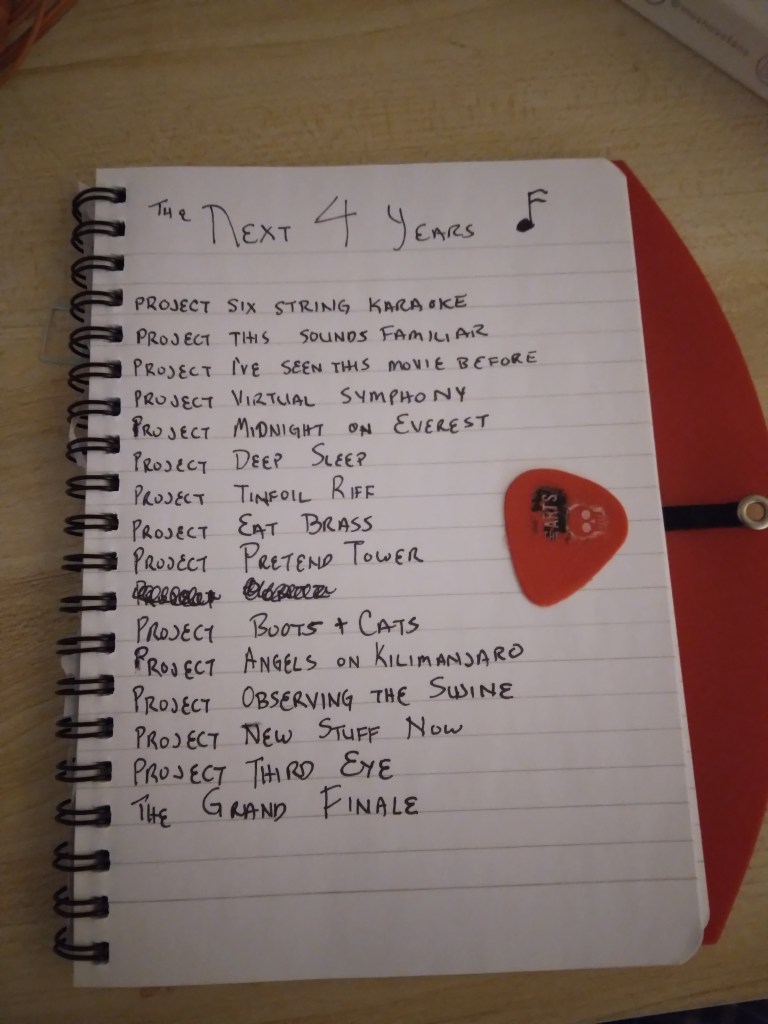 THE NEXT 4 YEARS
PROJECT SIX STRING KARAOKE
PROJECT THIS SOUNDS FAMILIAR
PROJECT I'VE SEEN THIS MOVIE BEFORE
PROJECT VIRTUAL SYMPHONY
PROJECT MIDNIGHT ON EVEREST
PROJECT DEEP SLEEP
PROJECT TINFOIL RIFF
PROJECT EAT BRASS
PROJECT PRETEND TOWER
PROJECT BOOTS + CATS
PROJECT ANGELS ON KILIMANJARO
PROJECT OBSERVING THE SWINE
PROJECT NEW STUFF NOW
PROJECT THIRD EYE
THE GRAND FINALE